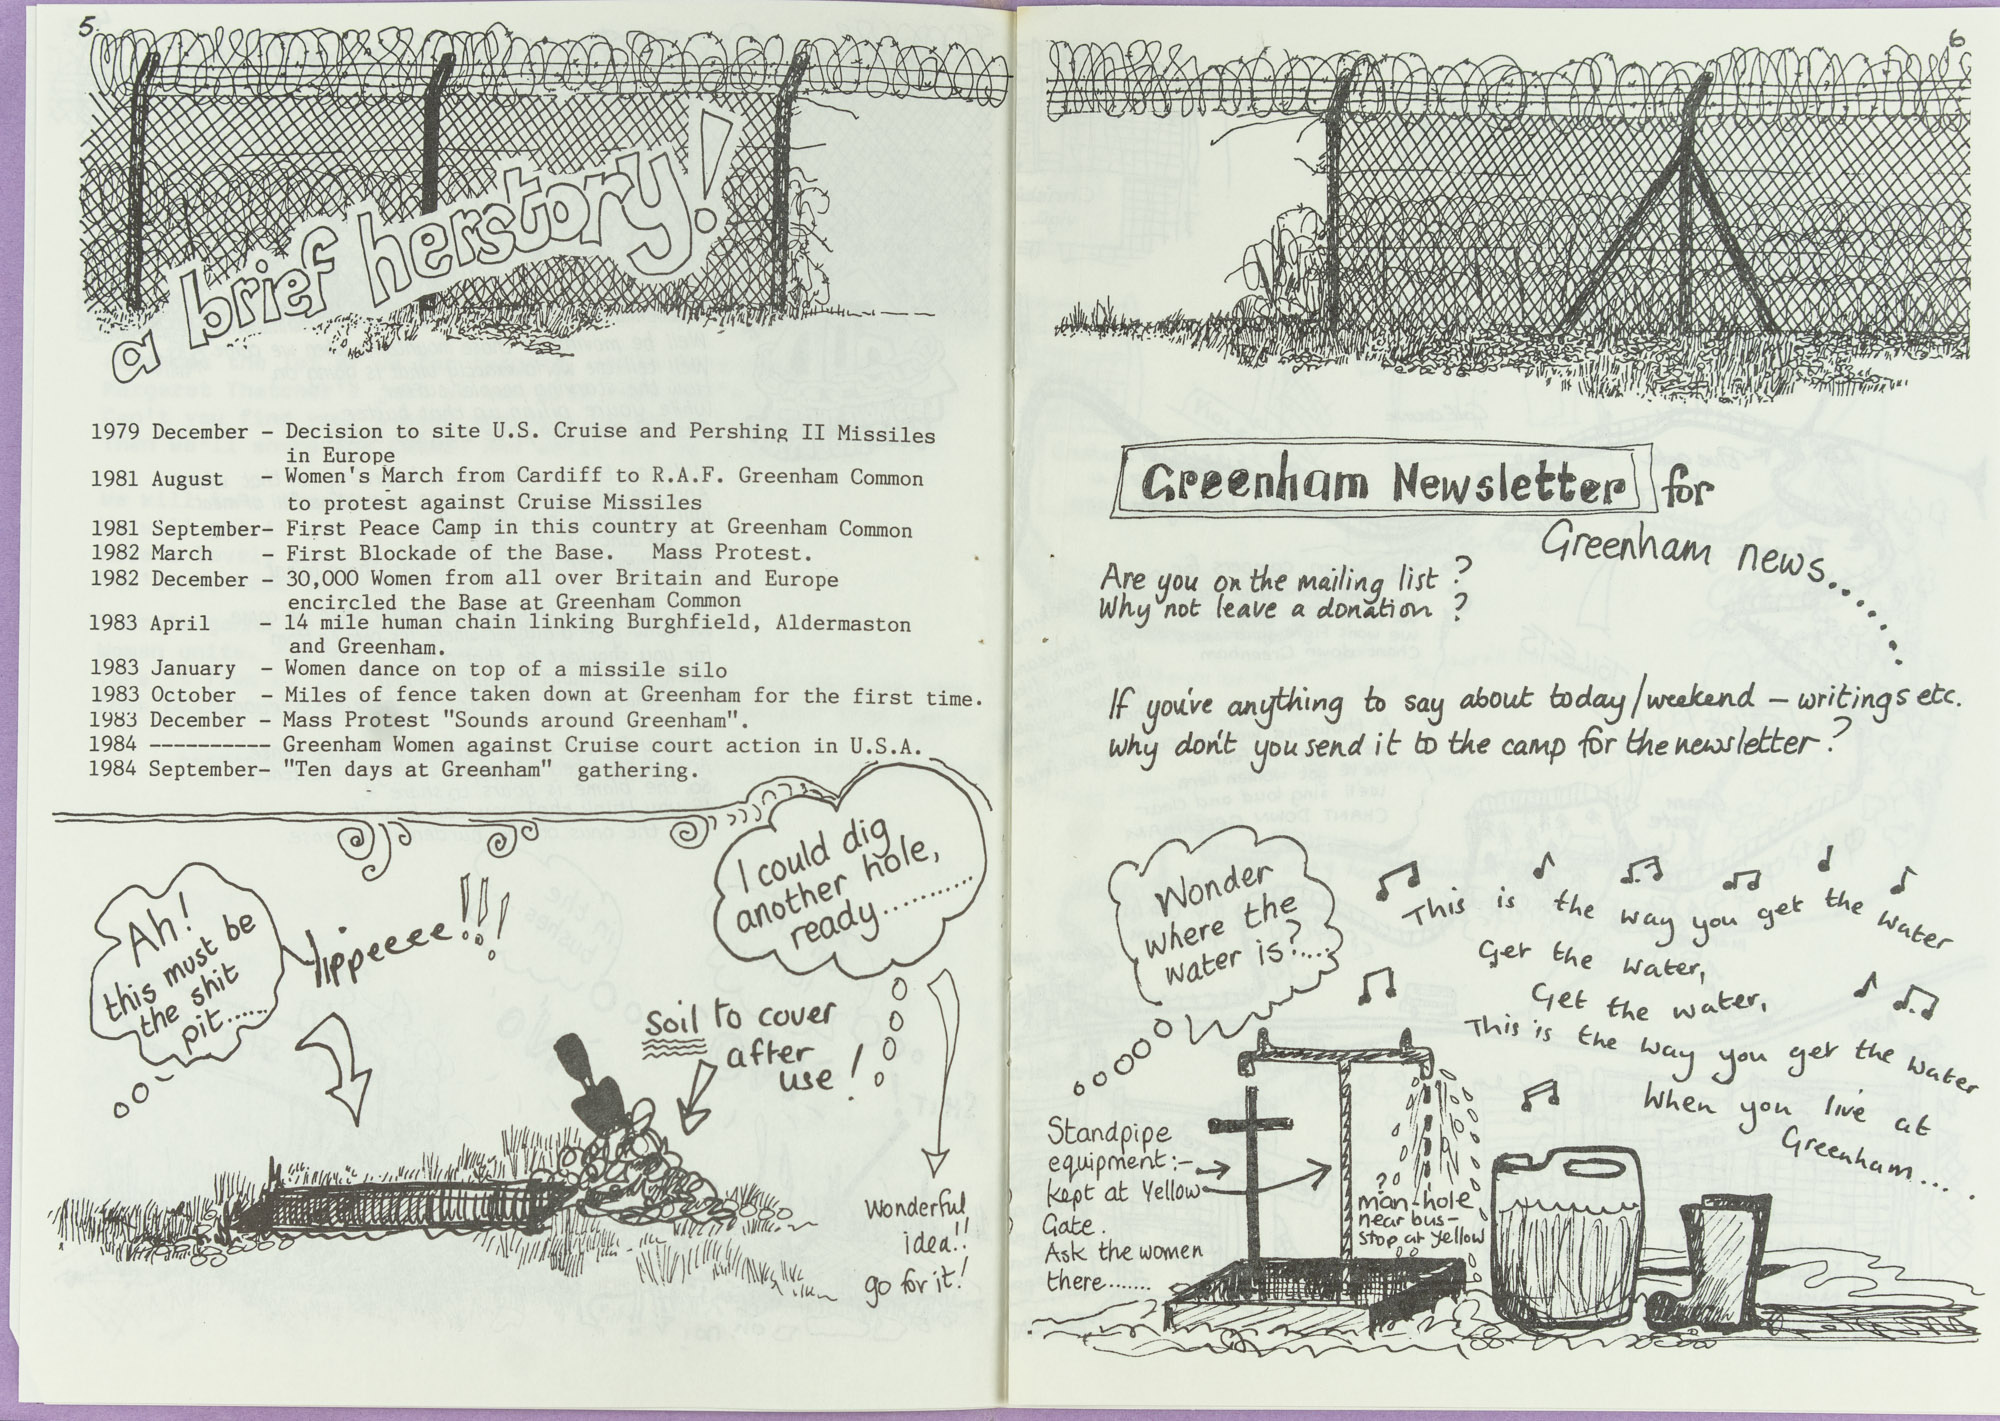 5.
a brief herstory!
1979 December - Decision to site U.S. Cruise and Pershing II Missiles
in Europe
1981 August - Women's March from Cardiff to R.A.F. Greenham Common
to protest against Cruise Missiles
1981 September- First Peace Camp in this country at Greenham Common
1982 March - First Blockade of the Base. Mass Protest.
1982 December - 30,000 Women from all over Britain and Europe
encircled the Base at Greenham Common
1983 April - 14 mile human chain linking Burghfield, Aldermaston
and Greenham.
1983 January - Women dance on top of a missile silo
1983 October - Miles of fence taken down at Greenham for the first time.
1983 December - Mass Protest "Sounds around Greenham".
1984 ---------- Greenham Women against Cruise court action in U.S.A.
1984 September- "Ten days at Greenham" gathering.
Ah!
this must be
the shit
pit......
Yippeeee!!!!
I could dig
another hole,
ready..........
Soil to cover
after
use!
Wonderful
idea!!
go for it!
6
Greenham Newsletter for
Greenham news........
Are you on the mailing list?
Why not leave a donation?
If you've anything to say about today/weekend - writings etc.
why don't you send it to the camp for the newsletter?
Wonder
where the
water is?....
This is the way you get the water
Get the water,
Get the water,
This is the way you get the water
When you live at
Greenham....
Standpipe
equipment:-
kept at Yellow
Gate.
Ask the women
there.......
?
man-hole
near bus-
stop at Yellow